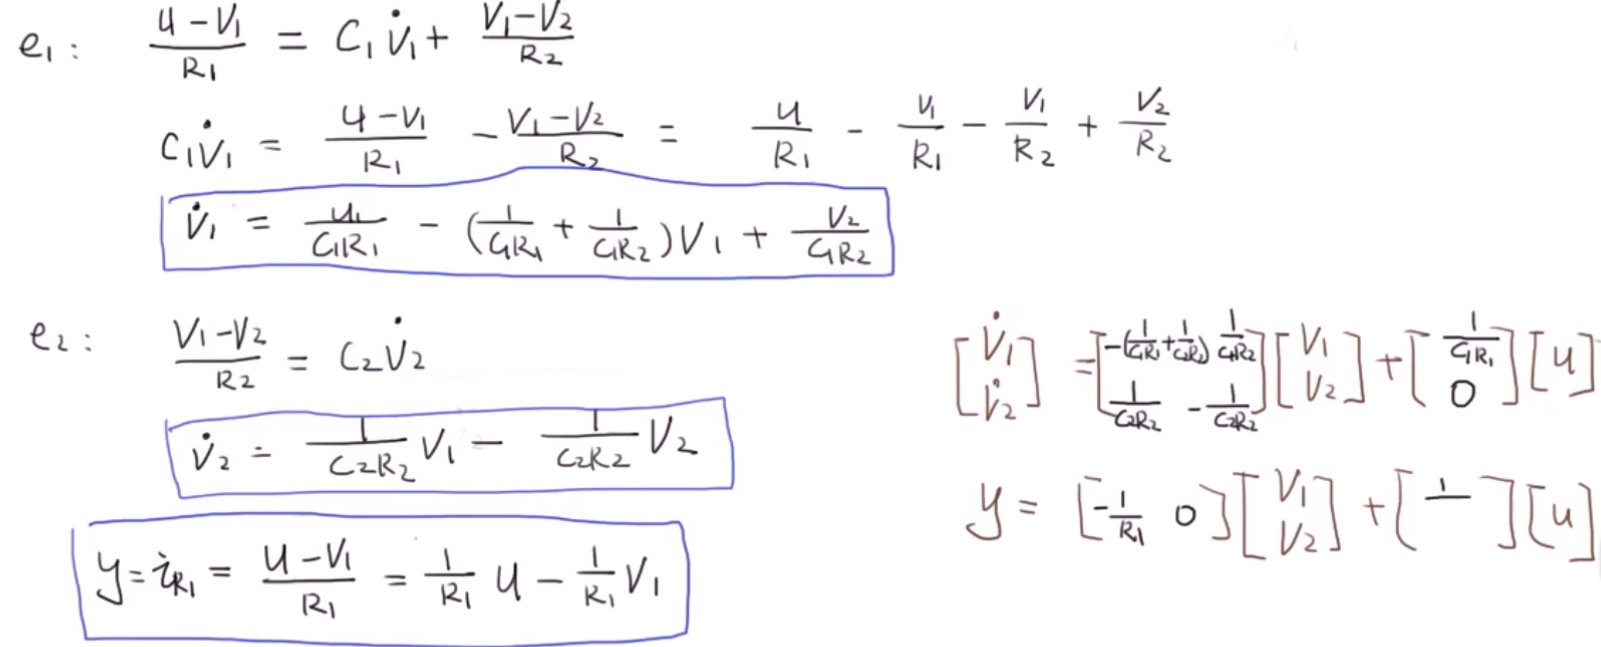 e₁: (u - V₁)/R₁ = C₁V̇₁ + (V₁ - V₂)/R₂
C₁V̇₁ = (u - V₁)/R₁ - (V₁ - V₂)/R₂ = u/R₁ - V₁/R₁ - V₁/R₂ + V₂/R₂
V̇₁ = u₁/(C₁R₁) - (1/(C₁R₁) + 1/(C₁R₂))V₁ + V₂/(C₁R₂)
e₂: (V₁ - V₂)/R₂ = C₂V̇₂
V̇₂ = 1/(C₂R₂) V₁ - 1/(C₂R₂) V₂
y = i_R₁ = (u - V₁)/R₁ = 1/R₁ u - 1/R₁ V₁
[V̇₁; V̇₂] = [-(1/(C₁R₁) + 1/(C₁R₂)) 1/(C₁R₂); 1/(C₂R₂) -1/(C₂R₂)] [V₁; V₂] + [1/(C₁R₁); 0] [u]
y = [-1/R₁ 0] [V₁; V₂] + [1/ ] [u]